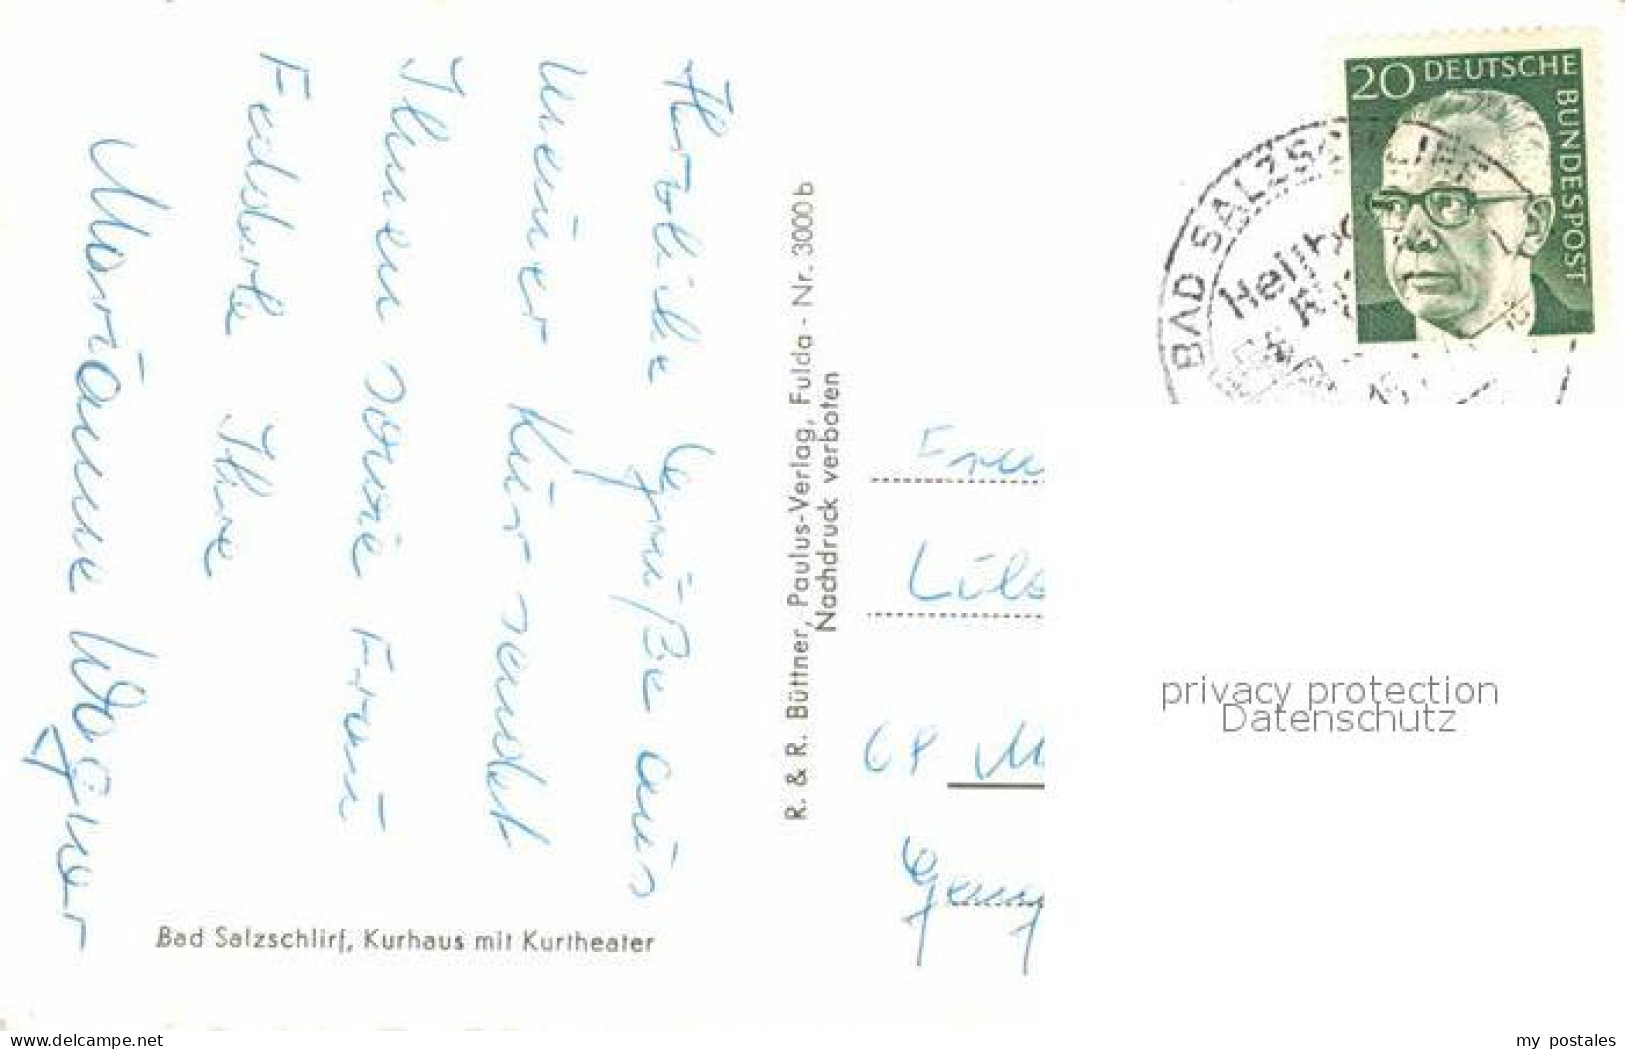 Herzliche Grüße aus
meiner Kur sendet
Ihnen sowie Frau
Ihre
Marianne Wagner
Bad Salzschlirf, Kurhaus mit Kurtheater
R. & R. Büttner, Paulus-Verlag, Fulda - Nr. 3000 b
Nachdruck verboten
20 DEUTSCHE BUNDESPOST
BAD SALZSCHLIRF
68 M
privacy protection
Datenschutz
www.delcampe.net
my postales